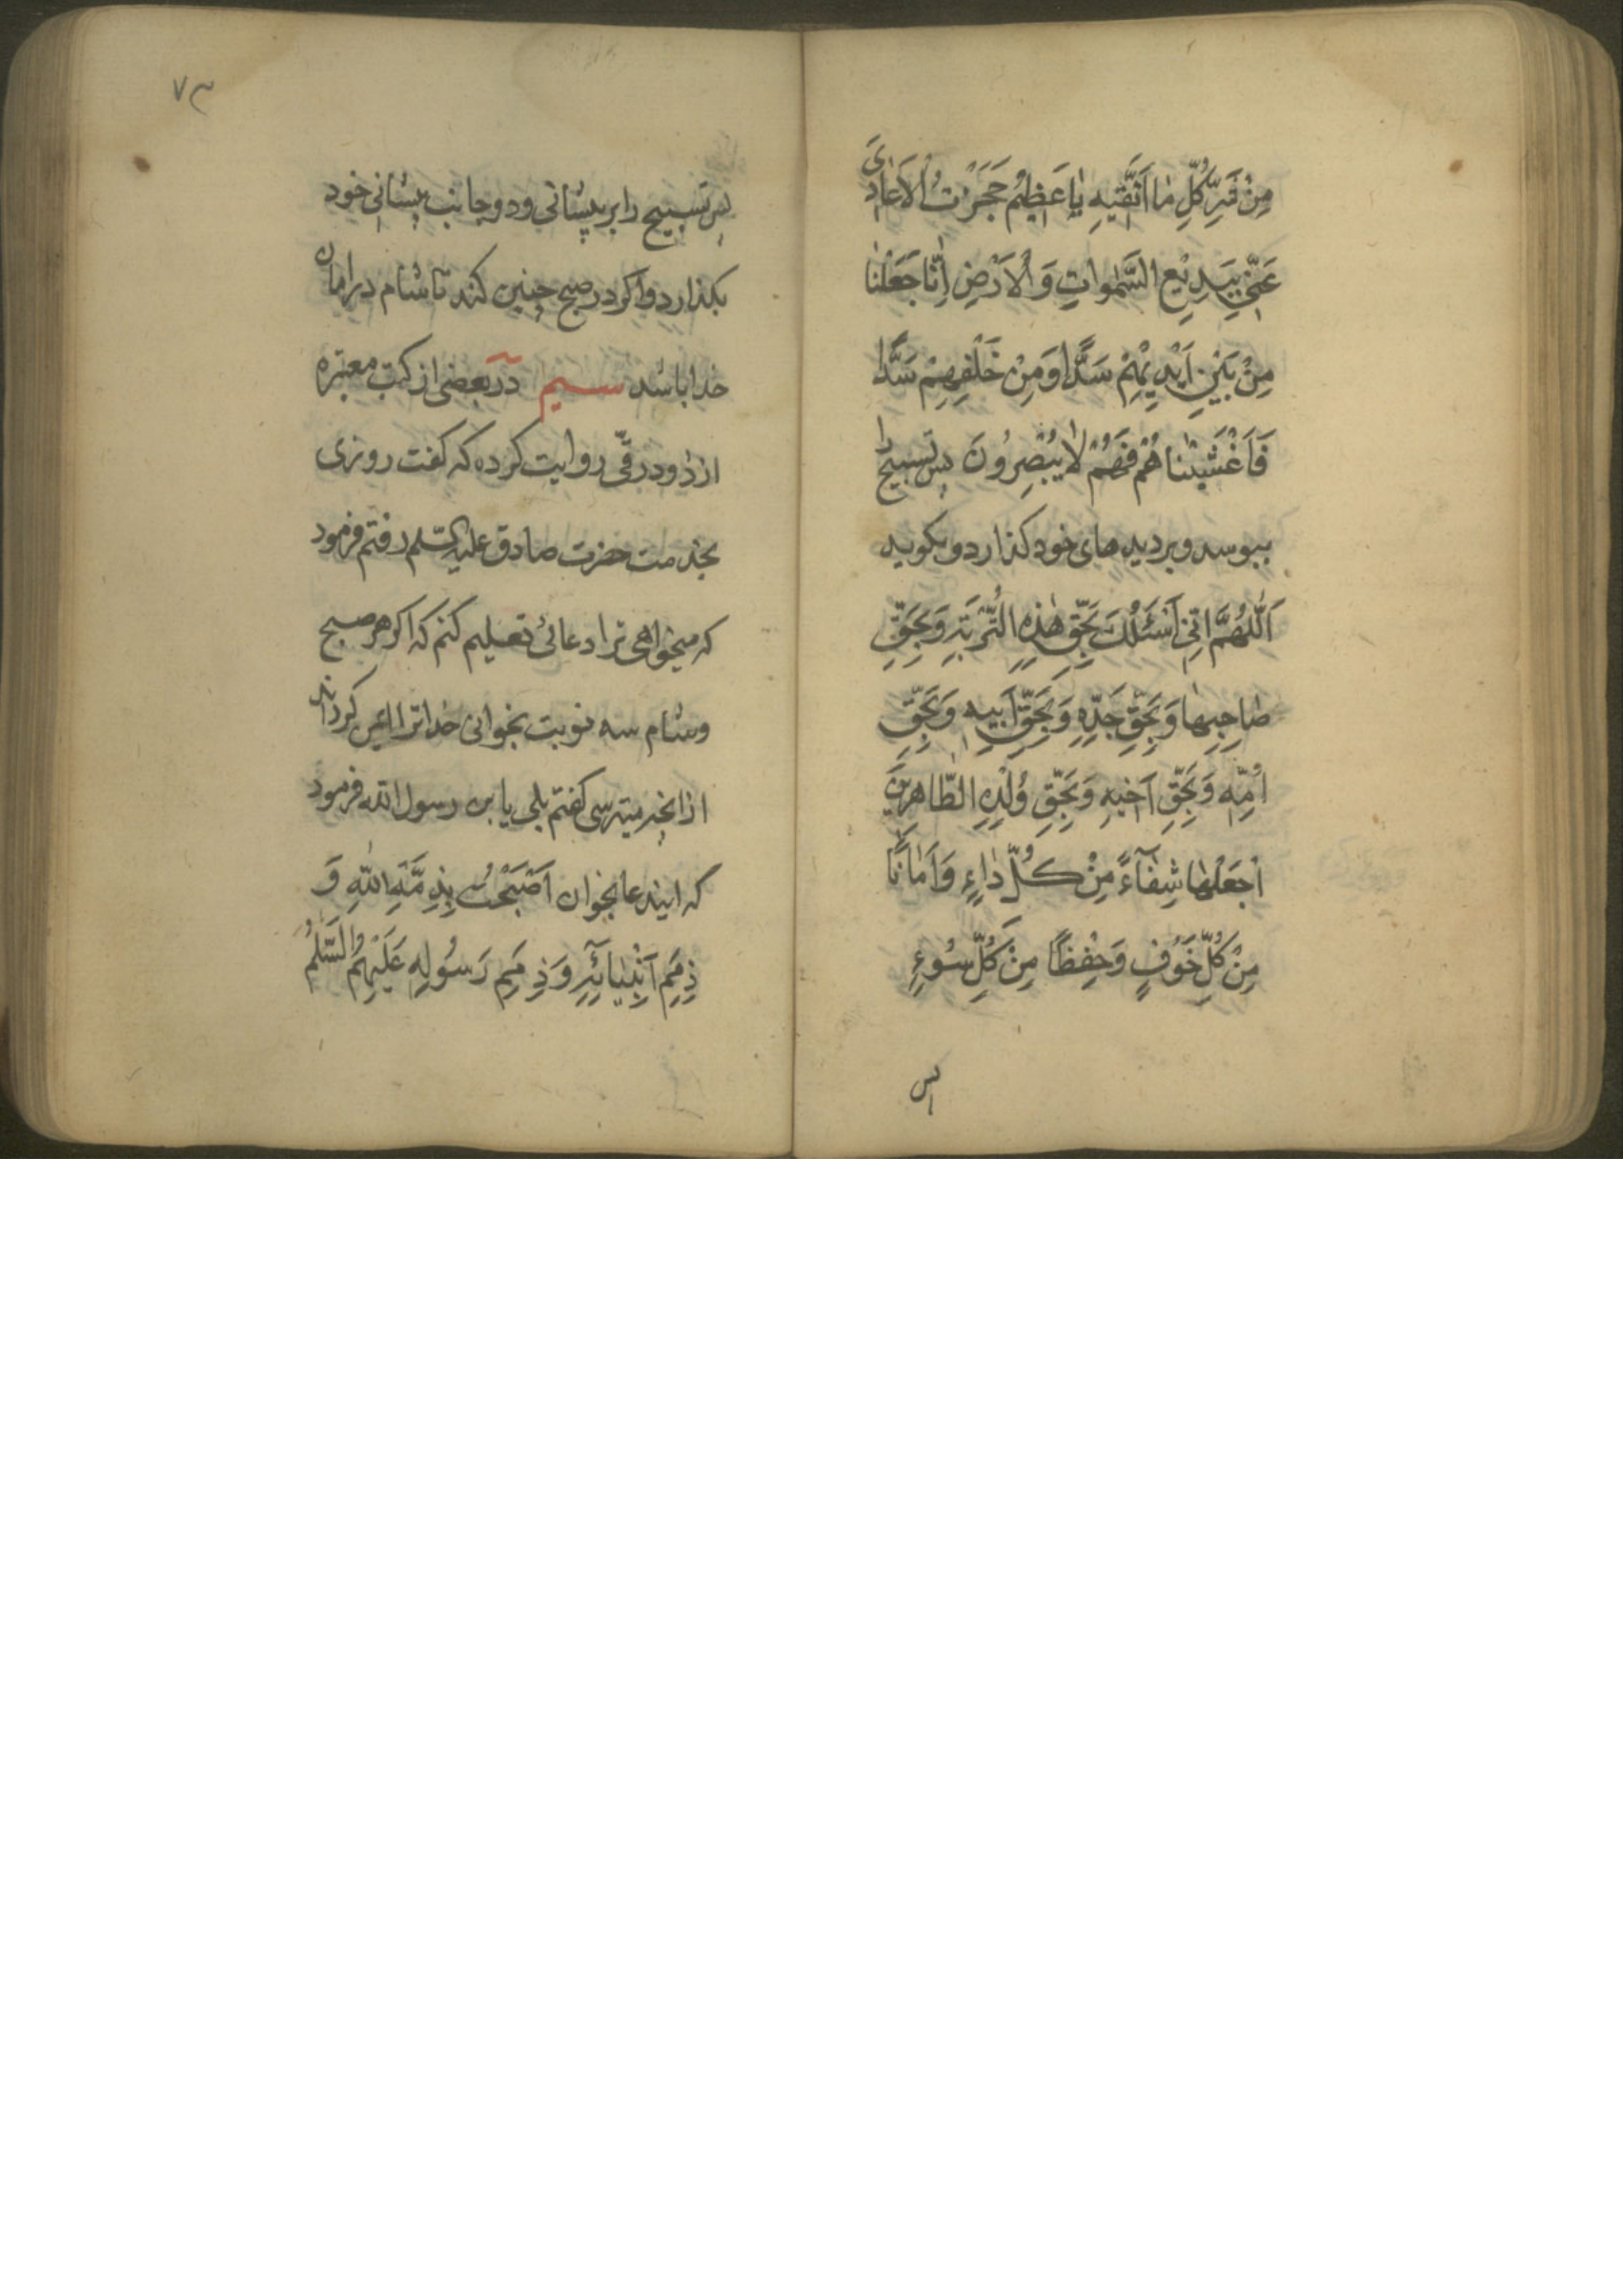 مِنْ شَرِّ كُلِّ مٰا اَتَّقیهِ یٰا عَظِیمُ حَجَزْتُ الْاَعٰادیَ
عَنّی بِبَدِیْعِ السَّمٰواتِ وَ الْاَرْضِ اِنّٰا جَعَلْنٰا
مِنْ بَیْنِ اَیْدِیْهِمْ سَدًّا وَمِنْ خَلْفِهِمْ سَدًّا
فَاَغْشَیْنٰاهُمْ فَهُمْ لٰا یُبْصِرُونَ پس تسبیح را
ببوسد و بر دیدهای خود کذارد و بکوید
اَللّٰهُمَّ اِنّی اَسْئَلُكَ بِحَقِّ هٰذِهِ التُّرْبَةِ وَ بِحَقِّ
صٰاحِبِهٰا وَ بِحَقِّ جَدِّهِ وَ بِحَقِّ اَبیهِ وَ بِحَقِّ
اُمِّهِ وَ بِحَقِّ اَخیهِ وَ بِحَقِّ وُلْدِهِ الطّٰاهِرِیْنَ
اجْعَلْهٰا شِفٰآءً مِنْ كُلِّ دٰاءٍ وَ اَمٰانًا
مِنْ كُلِّ خَوْفٍ وَ حِفْظًا مِنْ كُلِّ سُوءٍ
پس
۷۳
پس تسبیح را بر پیشانی و دو جانب پیشانی خود
بکذارد و اکر در صبح چنین کند تا شام در امان
خدا باشد سیم در بعضی از کتب معتبره
از داود رقّی روایت کرده که کفت روزی
بخدمت حضرت صادق علیه السّلم رفتم فرمود
که میخواهی ترا دعائی تعلیم کنم که اکر هر صبح
و شام سه نوبت بخوانی خدا ترا ایمن کرداند
از انچه میترسی کفتم بلی یا بن رسول الله فرمود
که ایندعا بخوان اَصْبَحْتُ بِذِمَّةِ اللّٰهِ وَ
ذِمَمِ اَنْبِیٰائِهِ وَ ذِمَمِ رَسُولِهِ عَلَیْهِمُ السَّلٰمُ